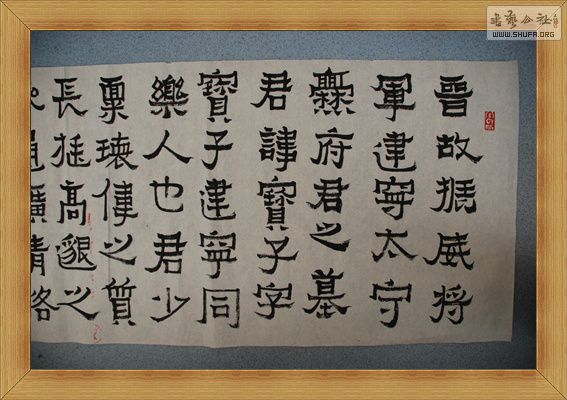 書藝公社
WWW.SHUFA.ORG
晉故振威將
軍建寧太守
爨府君之墓
君諱寶子字
寶子建寧同
樂人也君少
稟瓌偉之質
長挺高邈之
通曠清恪